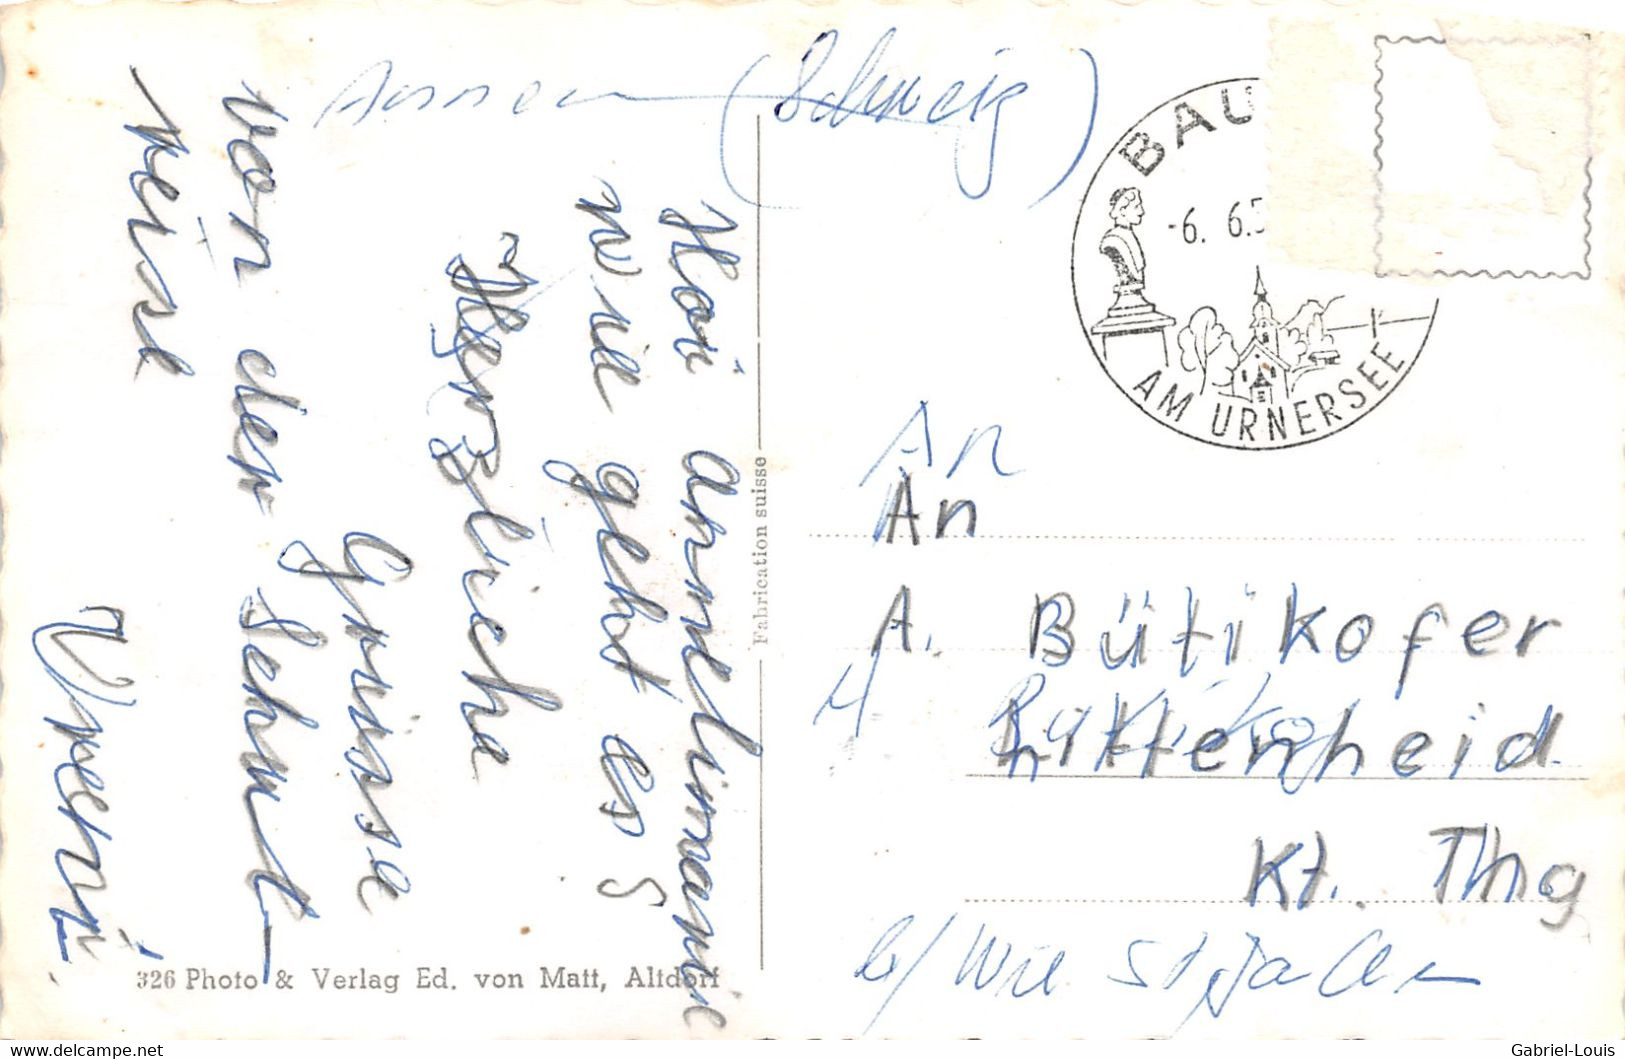 (Schweiz)
Hoi annelimarie
wie geht es
Herzliche
Grüsse
von der Schul
reise
Vreeni
326 Photo & Verlag Ed. von Matt, Altdorf
Fabrication suisse
BAU
-6. 6.5
AM URNERSEE
An
An
A. Bütikofer
Littenheid
Kt. Thg
www.delcampe.net
Gabriel-Louis